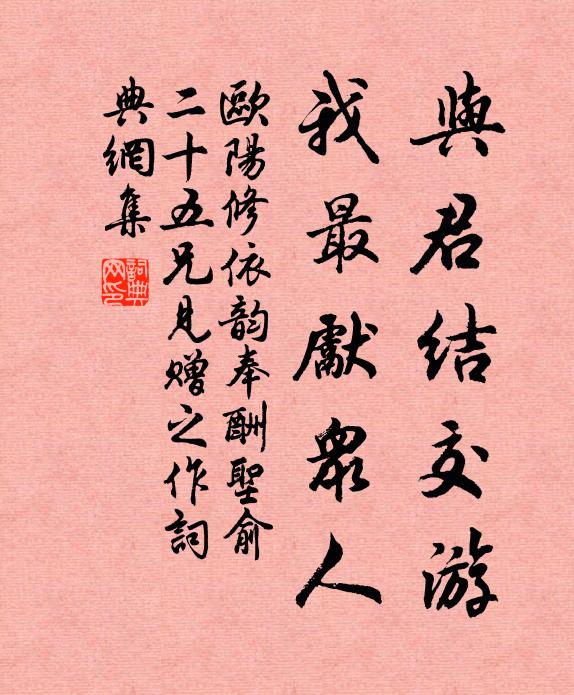 與君結交游
我最獻眾人
歐陽修依韵奉酬聖俞
二十五兄見贈之作詞
典網集
詞典
网印